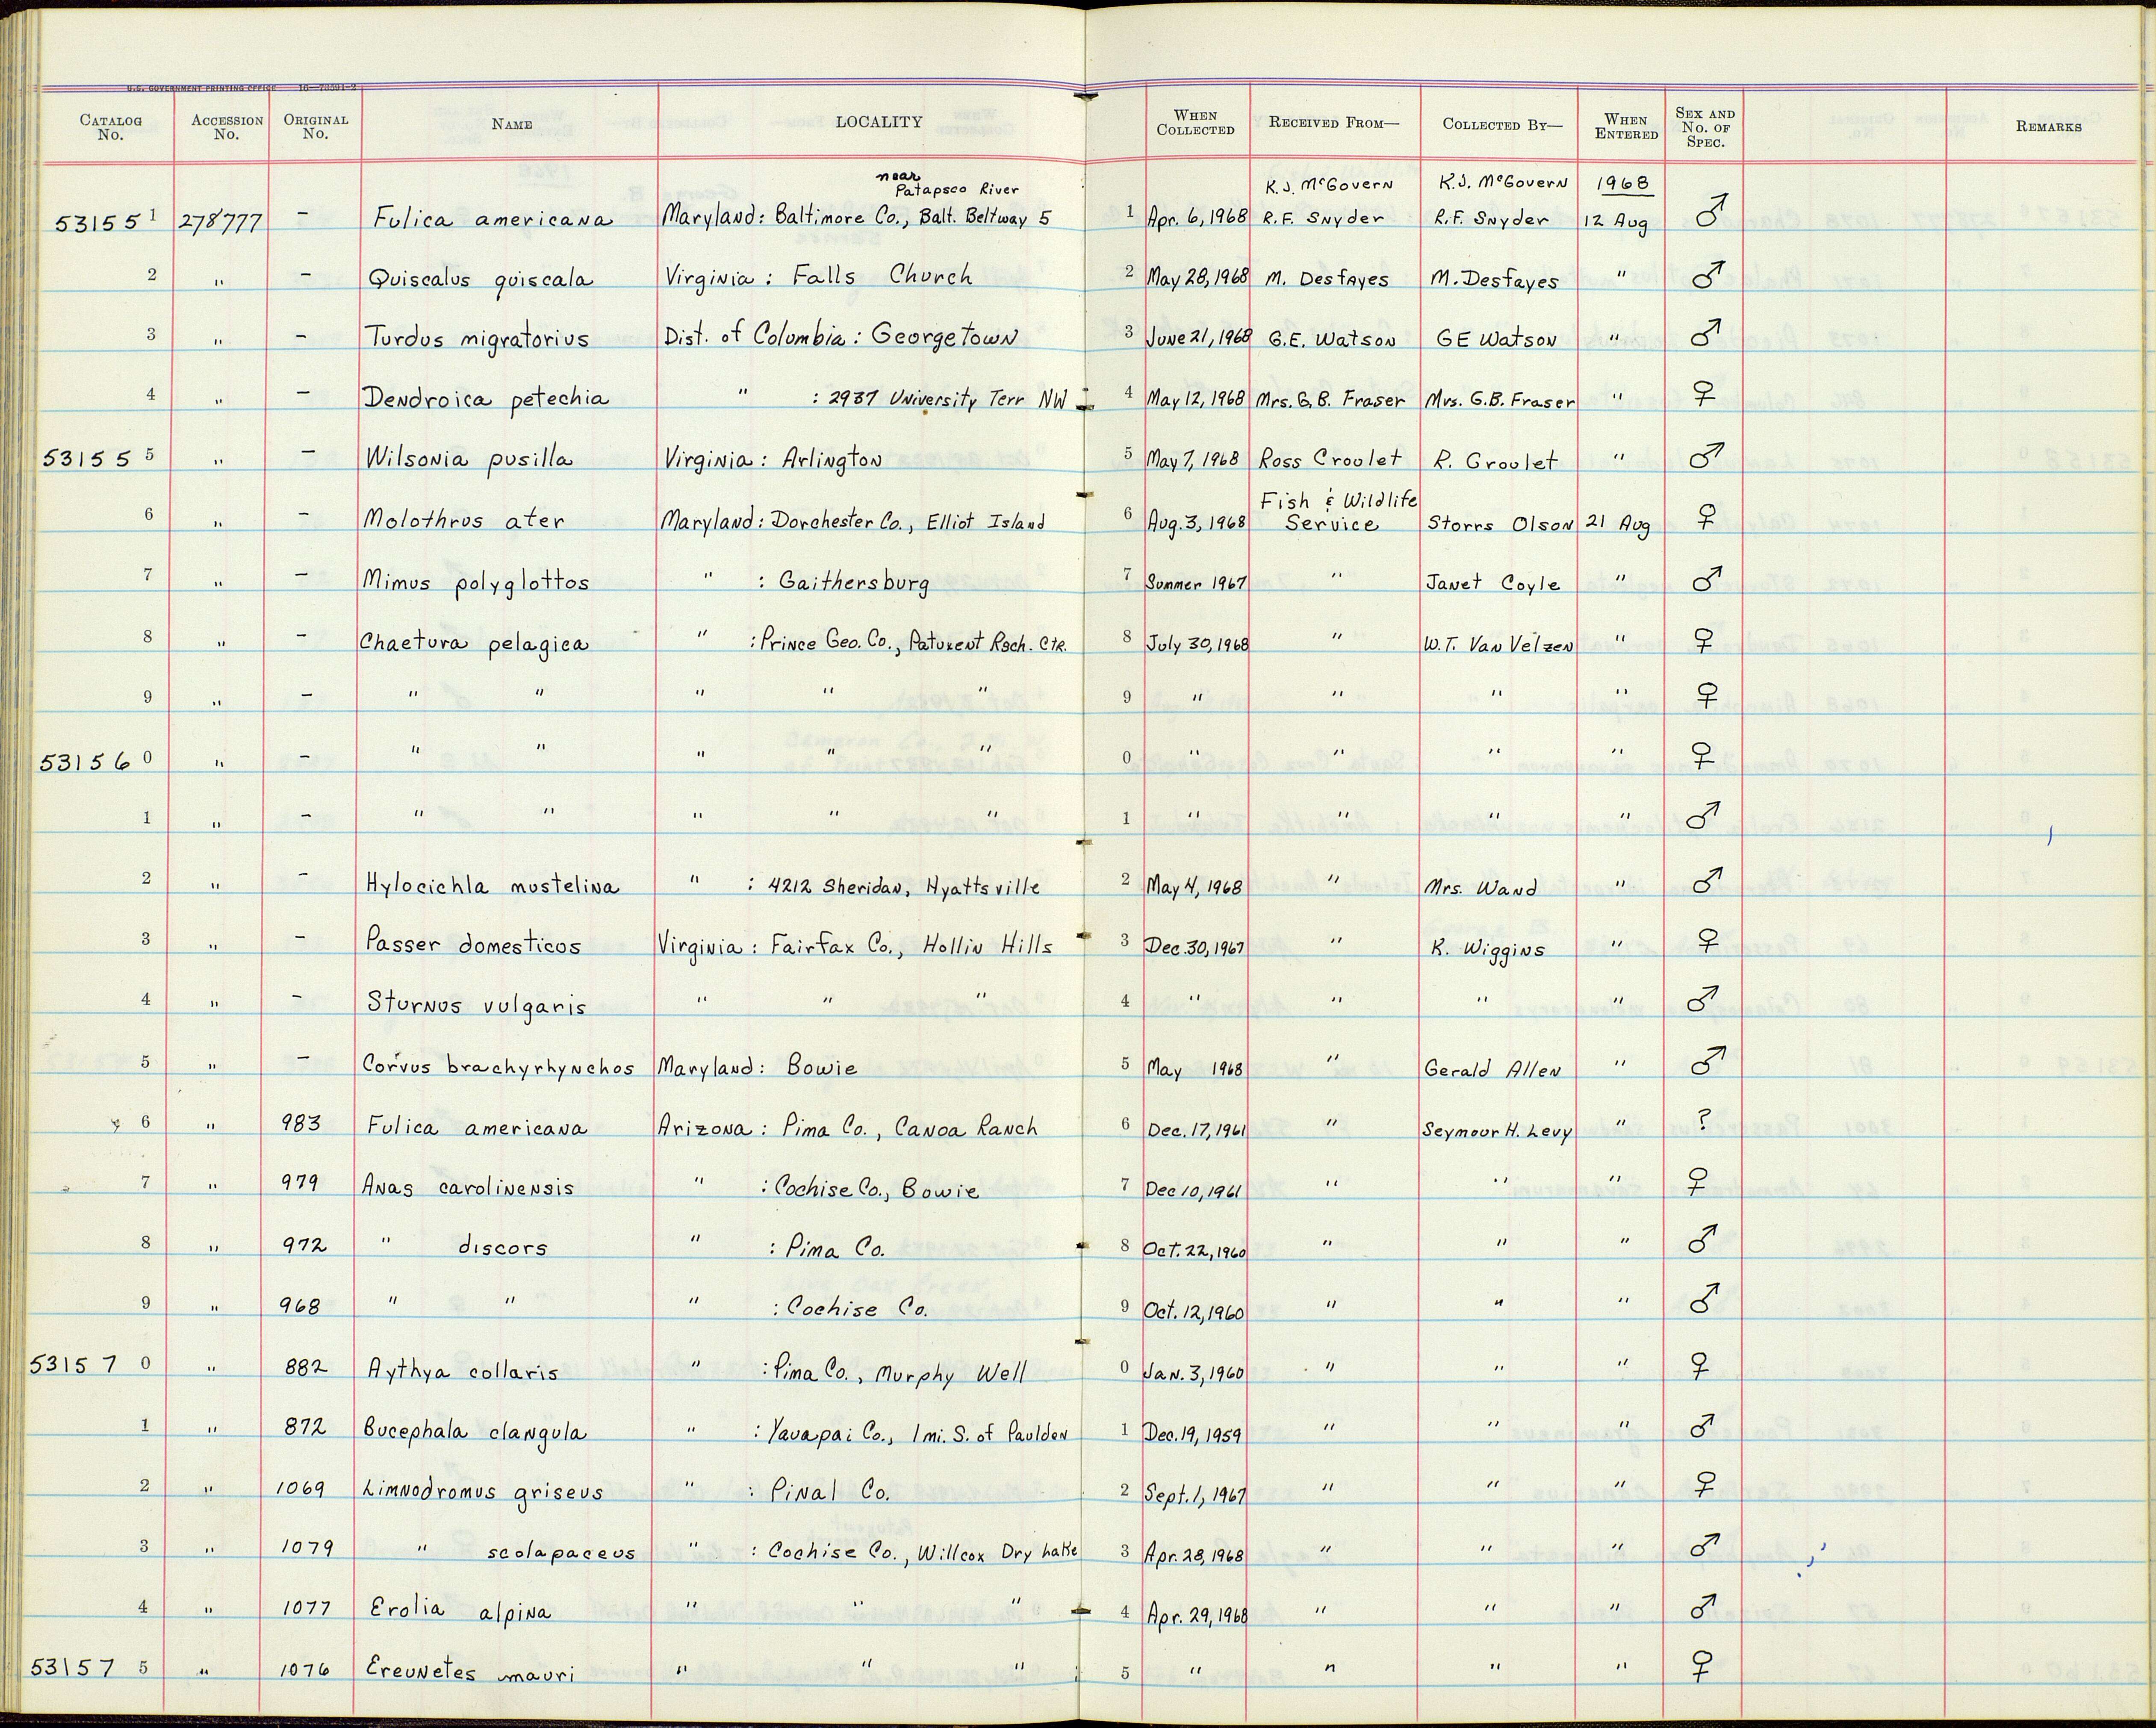 U.S. GOVERNMENT PRINTING OFFICE 16—73591-2
CATALOG No. ACCESSION No. ORIGINAL No. NAME LOCALITY WHEN COLLECTED RECEIVED FROM— COLLECTED BY— WHEN ENTERED SEX AND No. OF SPEC. REMARKS
near
Patapsco River K.J. McGovern K.J. McGovern 1968
53155 1 278777 – Fulica americana Maryland: Baltimore Co., Balt. Beltway 5 1 Apr. 6, 1968 R.F. Snyder R.F. Snyder 12 Aug ♂
2 " – Quiscalus quiscala Virginia : Falls Church 2 May 28, 1968 M. Desfayes M. Desfayes " ♂
3 " – Turdus migratorius Dist. of Columbia : Georgetown 3 June 21, 1968 G.E. Watson GE Watson " ♂
4 " – Dendroica petechia " : 2937 University Terr NW 4 May 12, 1968 Mrs. G.B. Fraser Mrs. G.B. Fraser " ♀
53155 5 " – Wilsonia pusilla Virginia : Arlington 5 May 7, 1968 Ross Croulet R. Croulet " ♂
Fish & Wildlife
6 " – Molothrus ater Maryland: Dorchester Co., Elliot Island 6 Aug. 3, 1968 Service Storrs Olson 21 Aug ♀
7 " – Mimus polyglottos " : Gaithersburg 7 Summer 1967 " Janet Coyle " ♂
8 " – Chaetura pelagica " : Prince Geo. Co., Patuxent Rsch. Ctr. 8 July 30, 1968 " W.T. Van Velzen " ♀
9 " – " " " " " 9 " " " " ♀
53156 0 " – " " " " " 0 " " " " ♀
1 " – " " " " " 1 " " " " ♂
2 " – Hylocichla mustelina " : 4212 Sheridan, Hyattsville 2 May 4, 1968 " Mrs. Wand " ♂
3 " – Passer domesticus Virginia : Fairfax Co., Hollin Hills 3 Dec. 30, 1967 " K. Wiggins " ♀
4 " – Sturnus vulgaris " " " 4 " " " " ♂
5 " – Corvus brachyrhynchos Maryland: Bowie 5 May 1968 " Gerald Allen " ♂
6 " 983 Fulica americana Arizona : Pima Co., Canoa Ranch 6 Dec. 17, 1961 " Seymour H. Levy " ?
7 " 979 Anas carolinensis " : Cochise Co., Bowie 7 Dec 10, 1961 " " " ♀
8 " 972 " discors " : Pima Co. 8 Oct. 22, 1960 " " " ♂
9 " 968 " " " : Cochise Co. 9 Oct. 12, 1960 " " " ♂
53157 0 " 882 Aythya collaris " : Pima Co., Murphy Well 0 Jan. 3, 1960 " " " ♀
1 " 872 Bucephala clangula " : Yavapai Co., 1 mi. S. of Paulden 1 Dec. 19, 1959 " " " ♂
2 " 1069 Limnodromus griseus " : Pinal Co. 2 Sept. 1, 1967 " " " ♀
3 " 1079 " scolapaceus " : Cochise Co., Willcox Dry Lake 3 Apr. 28, 1968 " " " ♂
4 " 1077 Erolia alpina " " " 4 Apr. 29, 1968 " " " ♂
53157 5 " 1076 Ereunetes mauri " " " 5 " " " " ♀